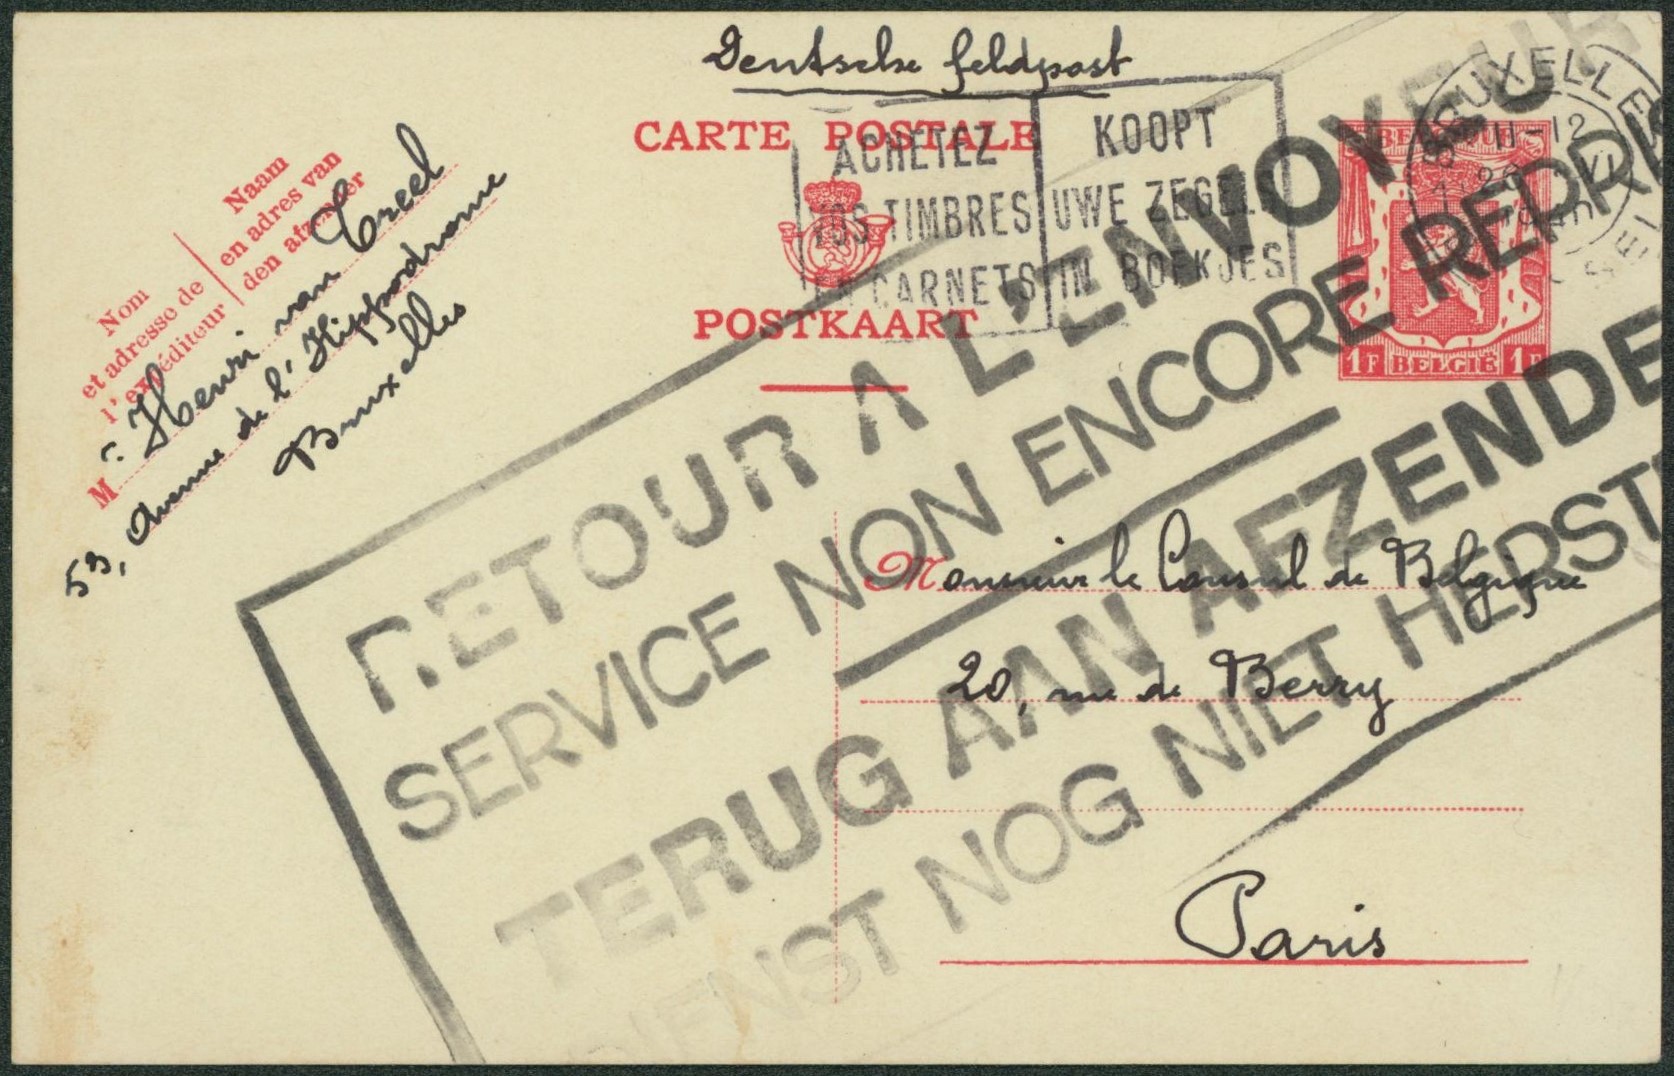 Deutsche feldpost
CARTE POSTALE
POSTKAART
ACHETEZ
VOS TIMBRES
EN CARNETS
KOOPT
UWE ZEGELS
IN BOEKJES
BRUXELLES
11-12
BELGIQUE
1F BELGIË 1F
Nom
et adresse de
l'expéditeur
Naam
en adres van
den afzender
M r Henri van Creel
53, Avenue de l'Hippodrome
Bruxelles
RETOUR A L'ENVOYEUR
SERVICE NON ENCORE REPRIS
TERUG AAN AFZENDE
DIENST NOG NIET HERST
Monsieur le Consul de Belgique
20, rue de Berry
Paris